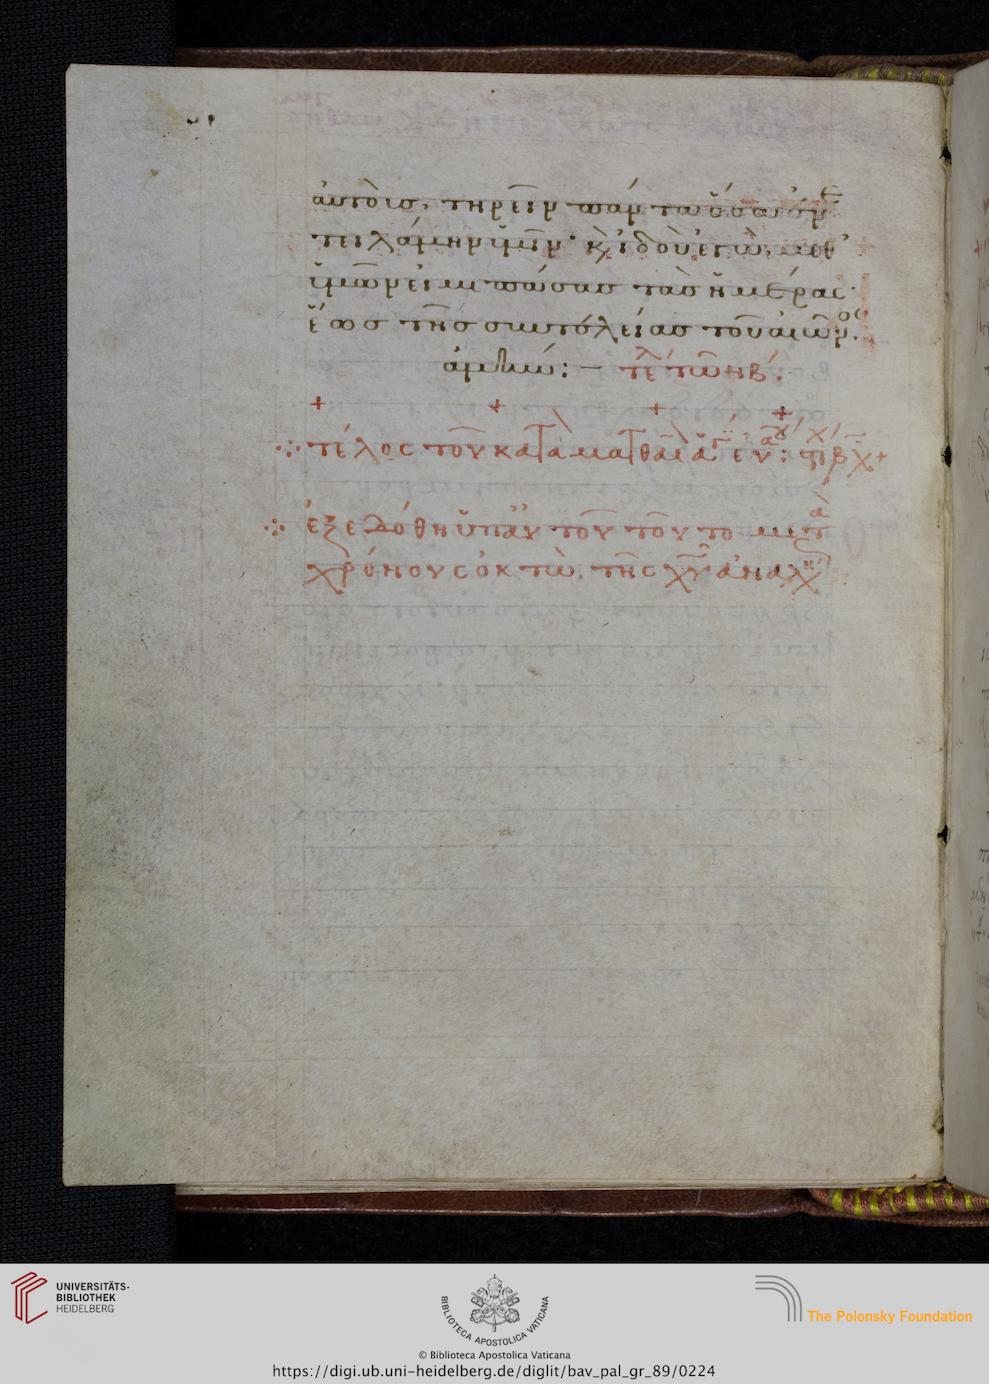 αὐτοὺς, τηρεῖν πάντα ὅσα ἐν
τειλάμην ὑμῖν· κ(αὶ) ἰδοὺ ἐγὼ, μεθ’
ὑμῶν εἰμι πάσας τὰς ἡμέρας·
ἕως τῆς συντελείας τοῦ αἰῶνος.
ἀμήν:— τελ τῶν β´.
τέλος τοῦ κατὰ ματθαῖ
ἐξεδόθη ὑπ' αὐτοῦ τοῦ το
χρόνους ὀκτὼ, τῆς χῦ ἀναλ
UNIVERSITÄTS-
BIBLIOTHEK
HEIDELBERG
BIBLIOTECA APOSTOLICA VATICANA
© Biblioteca Apostolica Vaticana
The Polonsky Foundation
https://digi.ub.uni-heidelberg.de/diglit/bav_pal_gr_89/0224